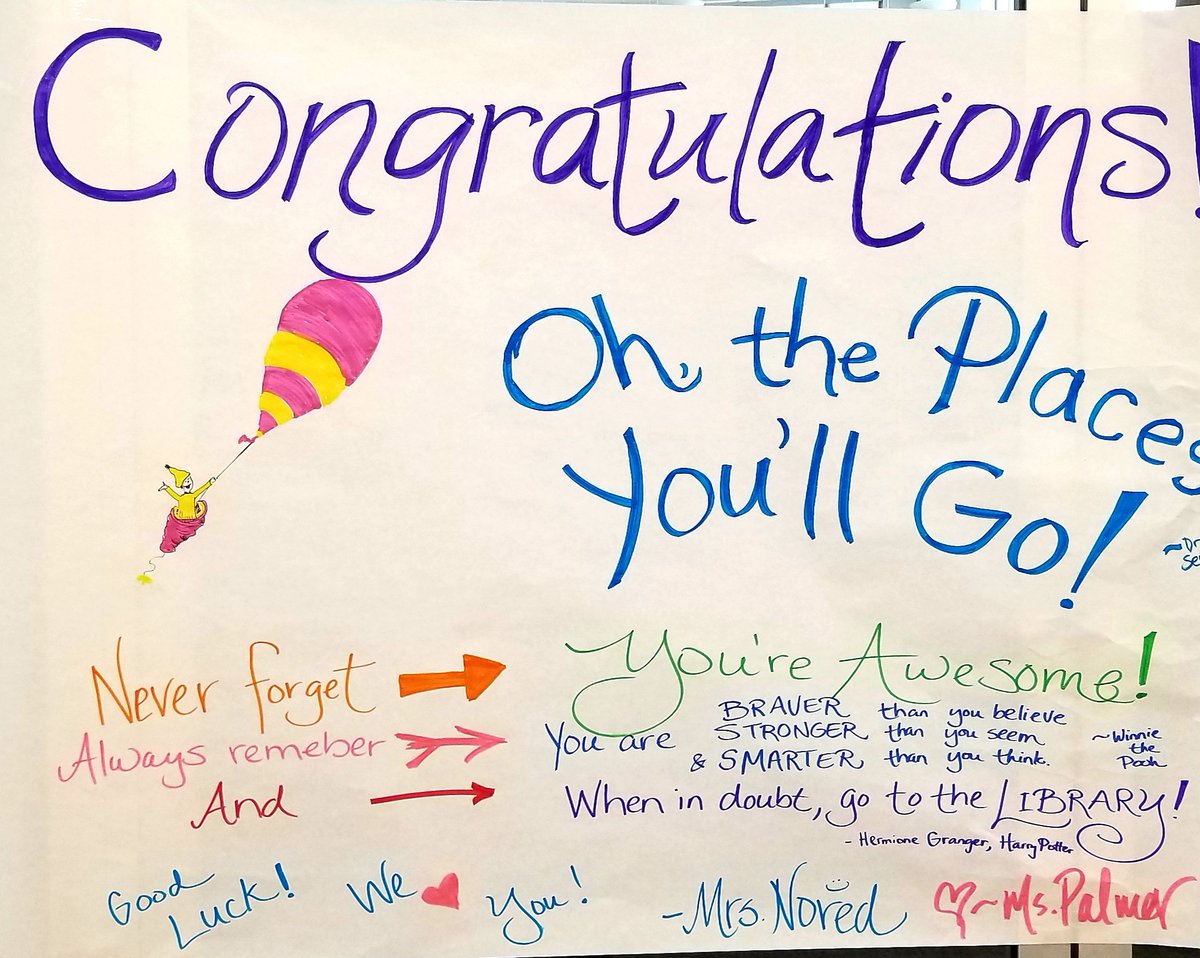 Congratulations!
Oh, the Places
You'll Go!
~Dr
Se
Never forget
You're Awesome!
Always remeber
You are
BRAVER than you believe
STRONGER than you seem
& SMARTER than you think.
~Winnie
the
Pooh
And
When in doubt, go to the LIBRARY!
- Hermione Granger, Harry Potter
Good
Luck!
We
You!
-Mrs. Nored
~Ms. Palmer